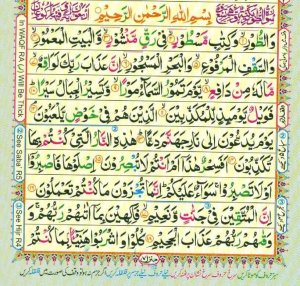 بِسْمِ اللّٰهِ الرَّحْمٰنِ الرَّحِيْمِ
وَالطُّوْرِ وَكِتٰبٍ مَّسْطُوْرٍ فِيْ رَقٍّ مَّنْشُوْرٍ وَّالْبَيْتِ الْمَعْمُوْرِ
وَالسَّقْفِ الْمَرْفُوْعِ وَالْبَحْرِ الْمَسْجُوْرِ اِنَّ عَذَابَ رَبِّكَ لَوَاقِعٌ
مَّا لَهٗ مِنْ دَافِعٍ يَّوْمَ تَمُوْرُ السَّمَآءُ مَوْرًا وَّتَسِيْرُ الْجِبَالُ سَيْرًا
فَوَيْلٌ يَّوْمَئِذٍ لِّلْمُكَذِّبِيْنَ الَّذِيْنَ هُمْ فِيْ خَوْضٍ يَّلْعَبُوْنَ
يَوْمَ يُدَعُّوْنَ اِلٰى نَارِ جَهَنَّمَ دَعًّا هٰذِهِ النَّارُ الَّتِيْ كُنْتُمْ بِهَا
تُكَذِّبُوْنَ اَفَسِحْرٌ هٰذَآ اَمْ اَنْتُمْ لَا تُبْصِرُوْنَ اِصْلَوْهَا فَاصْبِرُوْٓا
اَوْ لَا تَصْبِرُوْا سَوَآءٌ عَلَيْكُمْ اِنَّمَا تُجْزَوْنَ مَا كُنْتُمْ تَعْمَلُوْنَ
اِنَّ الْمُتَّقِيْنَ فِيْ جَنّٰتٍ وَّنَعِيْمٍ فٰكِهِيْنَ بِمَآ اٰتٰىهُمْ رَبُّهُمْ وَ
وَقٰىهُمْ رَبُّهُمْ عَذَابَ الْجَحِيْمِ كُلُوْا وَاشْرَبُوْا هَنِيْٓـًٔا بِمَا كُنْتُمْ
In WAQF RA (ر) Will Be Thick
② See Saba' R5
③ See Hijr R4